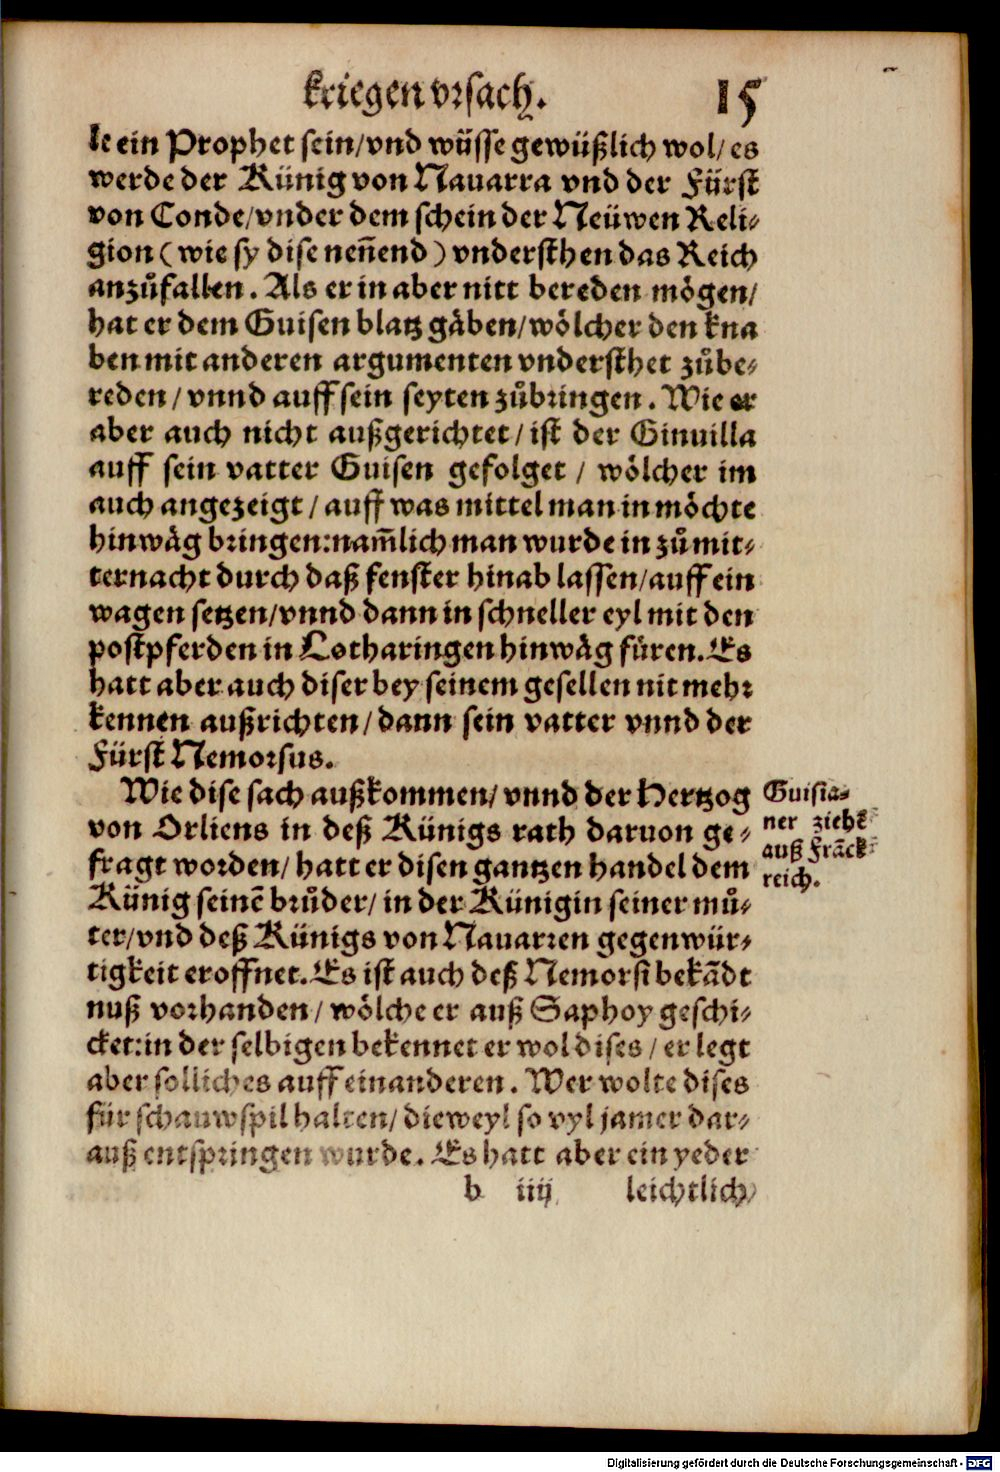 kriegen vrsach. 15
le ein Prophet sein/vnd wüsse gewüßlich wol/es
werde der Künig von Nauarra vnd der Fürst
von Conde/vnder dem schein der Neüwen Reli-
gion (wie sy dise nen̄end) vndersthen das Reich
anzůfallen. Als er in aber nitt bereden mögen/
hat er dem Guisen blatz gäben/wölcher den kna
ben mit anderen argumenten vndersthet zůbe-
reden/vnnd auff sein seyten zůbringen. Wie er
aber auch nicht außgerichtet/ist der Ginuilla
auff sein vatter Guisen gefolget/wölcher im
auch angezeigt/auff was mittel man in möchte
hinwäg bringen:nam̄lich man wurde in zů mit-
ternacht durch daß fenster hinab lassen/auff ein
wagen setzen/vnnd dann in schneller eyl mit den
postpferden in Lotharingen hinwäg füren. Es
hatt aber auch diser bey seinem gesellen nit mehr
kennen außrichten/dann sein vatter vnnd der
Fürst Nemorsus.
Wie dise sach außkommen/vnnd der Hertzog
von Orliens in deß Künigs rath daruon ge-
fragt worden/hatt er disen gantzen handel dem
Künig seinē brůder/in der Künigin seiner mů-
ter/vnd deß Künigs von Nauarren gegenwür-
tigkeit eroffnet. Es ist auch deß Nemorsi bekādt
nuß vorhanden/wölche er auß Saphoy geschi-
cket:in der selbigen bekennet er wol dises/er legt
aber solliches auff einanderen. Wer wolte dises
für schauwspil halten/dieweyl so vyl jamer dar-
auß entspringen wurde. Es hatt aber ein yeder
b iiij leichtlich
Guisia-
ner zieht
auß Frāck
reich.
Digitalisierung gefördert durch die Deutsche Forschungsgemeinschaft - DFG